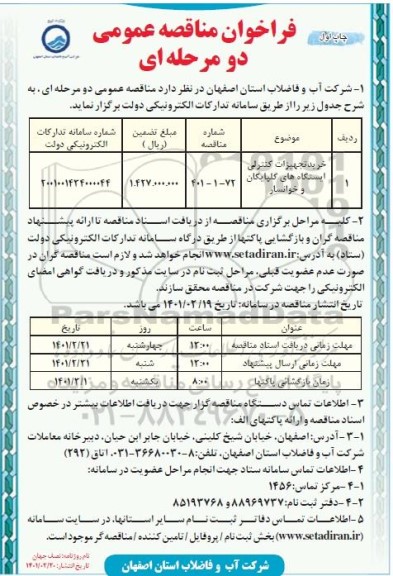 چاپ اول
فراخوان مناقصه عمومی
دو مرحله ای
۱- شرکت آب و فاضلاب استان اصفهان در نظر دارد مناقصه عمومی دو مرحله ای ، به
شرح جدول زیر را از طریق سامانه تدارکات الکترونیکی دولت برگزار نماید.
ردیف موضوع شماره مناقصه مبلغ تضمین (ریال) شماره سامانه تدارکات الکترونیکی دولت
۱ خرید تجهیزات کنترلی ایستگاه های گلپایگان و خوانسار ۴۰۱-۱-۷۲ ۱.۴۲۷.۰۰۰.۰۰۰ ۲۰۰۱۰۰۱۴۳۴۰۰۰۰۴۴
۲- کلیه مراحل برگزاری مناقصه از دریافت اسناد مناقصه تا ارائه پیشنهاد
مناقصه گران و بازگشایی پاکتها از طریق درگاه سامانه تدارکات الکترونیکی دولت
(ستاد) به آدرس: www.setadiran.ir انجام خواهد شد و لازم است مناقصه گران در
صورت عدم عضویت قبلی، مراحل ثبت نام در سایت مذکور و دریافت گواهی امضای
الکترونیکی را جهت شرکت در مناقصه محقق سازند.
تاریخ انتشار مناقصه در سامانه: تاریخ ۱۴۰۱/۰۲/۱۹ می باشد.
عنوان ساعت روز تاریخ
مهلت زمانی دریافت اسناد مناقصه ۱۳:۰۰ چهارشنبه ۱۴۰۱/۲/۲۱
مهلت زمانی ارسال پیشنهاد ۱۳:۰۰ شنبه
زمان بازگشائی پاکتها ۸:۰۰ یکشنبه
۳- اطلاعات تماس دستگاه مناقصه گزار جهت دریافت اطلاعات بیشتر در خصوص
اسناد مناقصه و ارائه پاکتهای الف:
۳-۱- آدرس: اصفهان، خیابان شیخ کلینی، خیابان جابر ابن حیان، دبیرخانه معاملات
شرکت آب و فاضلاب استان اصفهان، تلفن: ۸-۰۳۱-۳۶۶۸۰۰۳۰، اتاق (۲۹۲)
۴- اطلاعات تماس سامانه ستاد جهت انجام مراحل عضویت در سامانه:
۴-۱- مرکز تماس: ۱۴۵۶
۴-۲- دفتر ثبت نام: ۸۸۹۶۹۷۳۷ و ۸۵۱۹۳۷۶۸
۵- اطلاعات تماس دفاتر ثبت نام سایر استانها، در سایت سامانه
(www.setadiran.ir) بخش ثبت نام / پروفایل / تامین کننده / مناقصه گر موجود است.
نام روزنامه: نصف جهان
تاریخ انتشار: ۱۴۰۱/۰۲/۲۰
شرکت آب و فاضلاب استان اصفهان
ParsNamadData